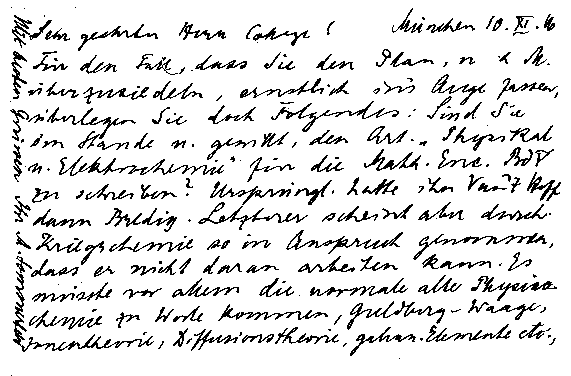 Sehr geehrter Herr College! München 10. XI. 16
Für den Fall, dass Sie den Plan, n. h. M.
überzusiedeln, ernstlich ins Auge fassen,
überlegen Sie doch Folgendes: Sind Sie
im Stande u. gewillt, den Art. „Physikal
u. Elektrochemie" für die Math. Enc. Bd V
zu schreiben? Ursprüngl. hatte ihn Van't Hoff
dann Bredig. Letzterer scheint aber durch
Kriegschemie so in Anspruch genommen,
dass er nicht daran arbeiten kann. Es
müsste vor allem die normale alte Physiko
chemie zu Worte kommen, Guldberg-Waage,
Ionentheorie, Diffusionstheorie, galvan. Elemente etc.,
Mit besten Grüssen Ihr A. Sommerfeld